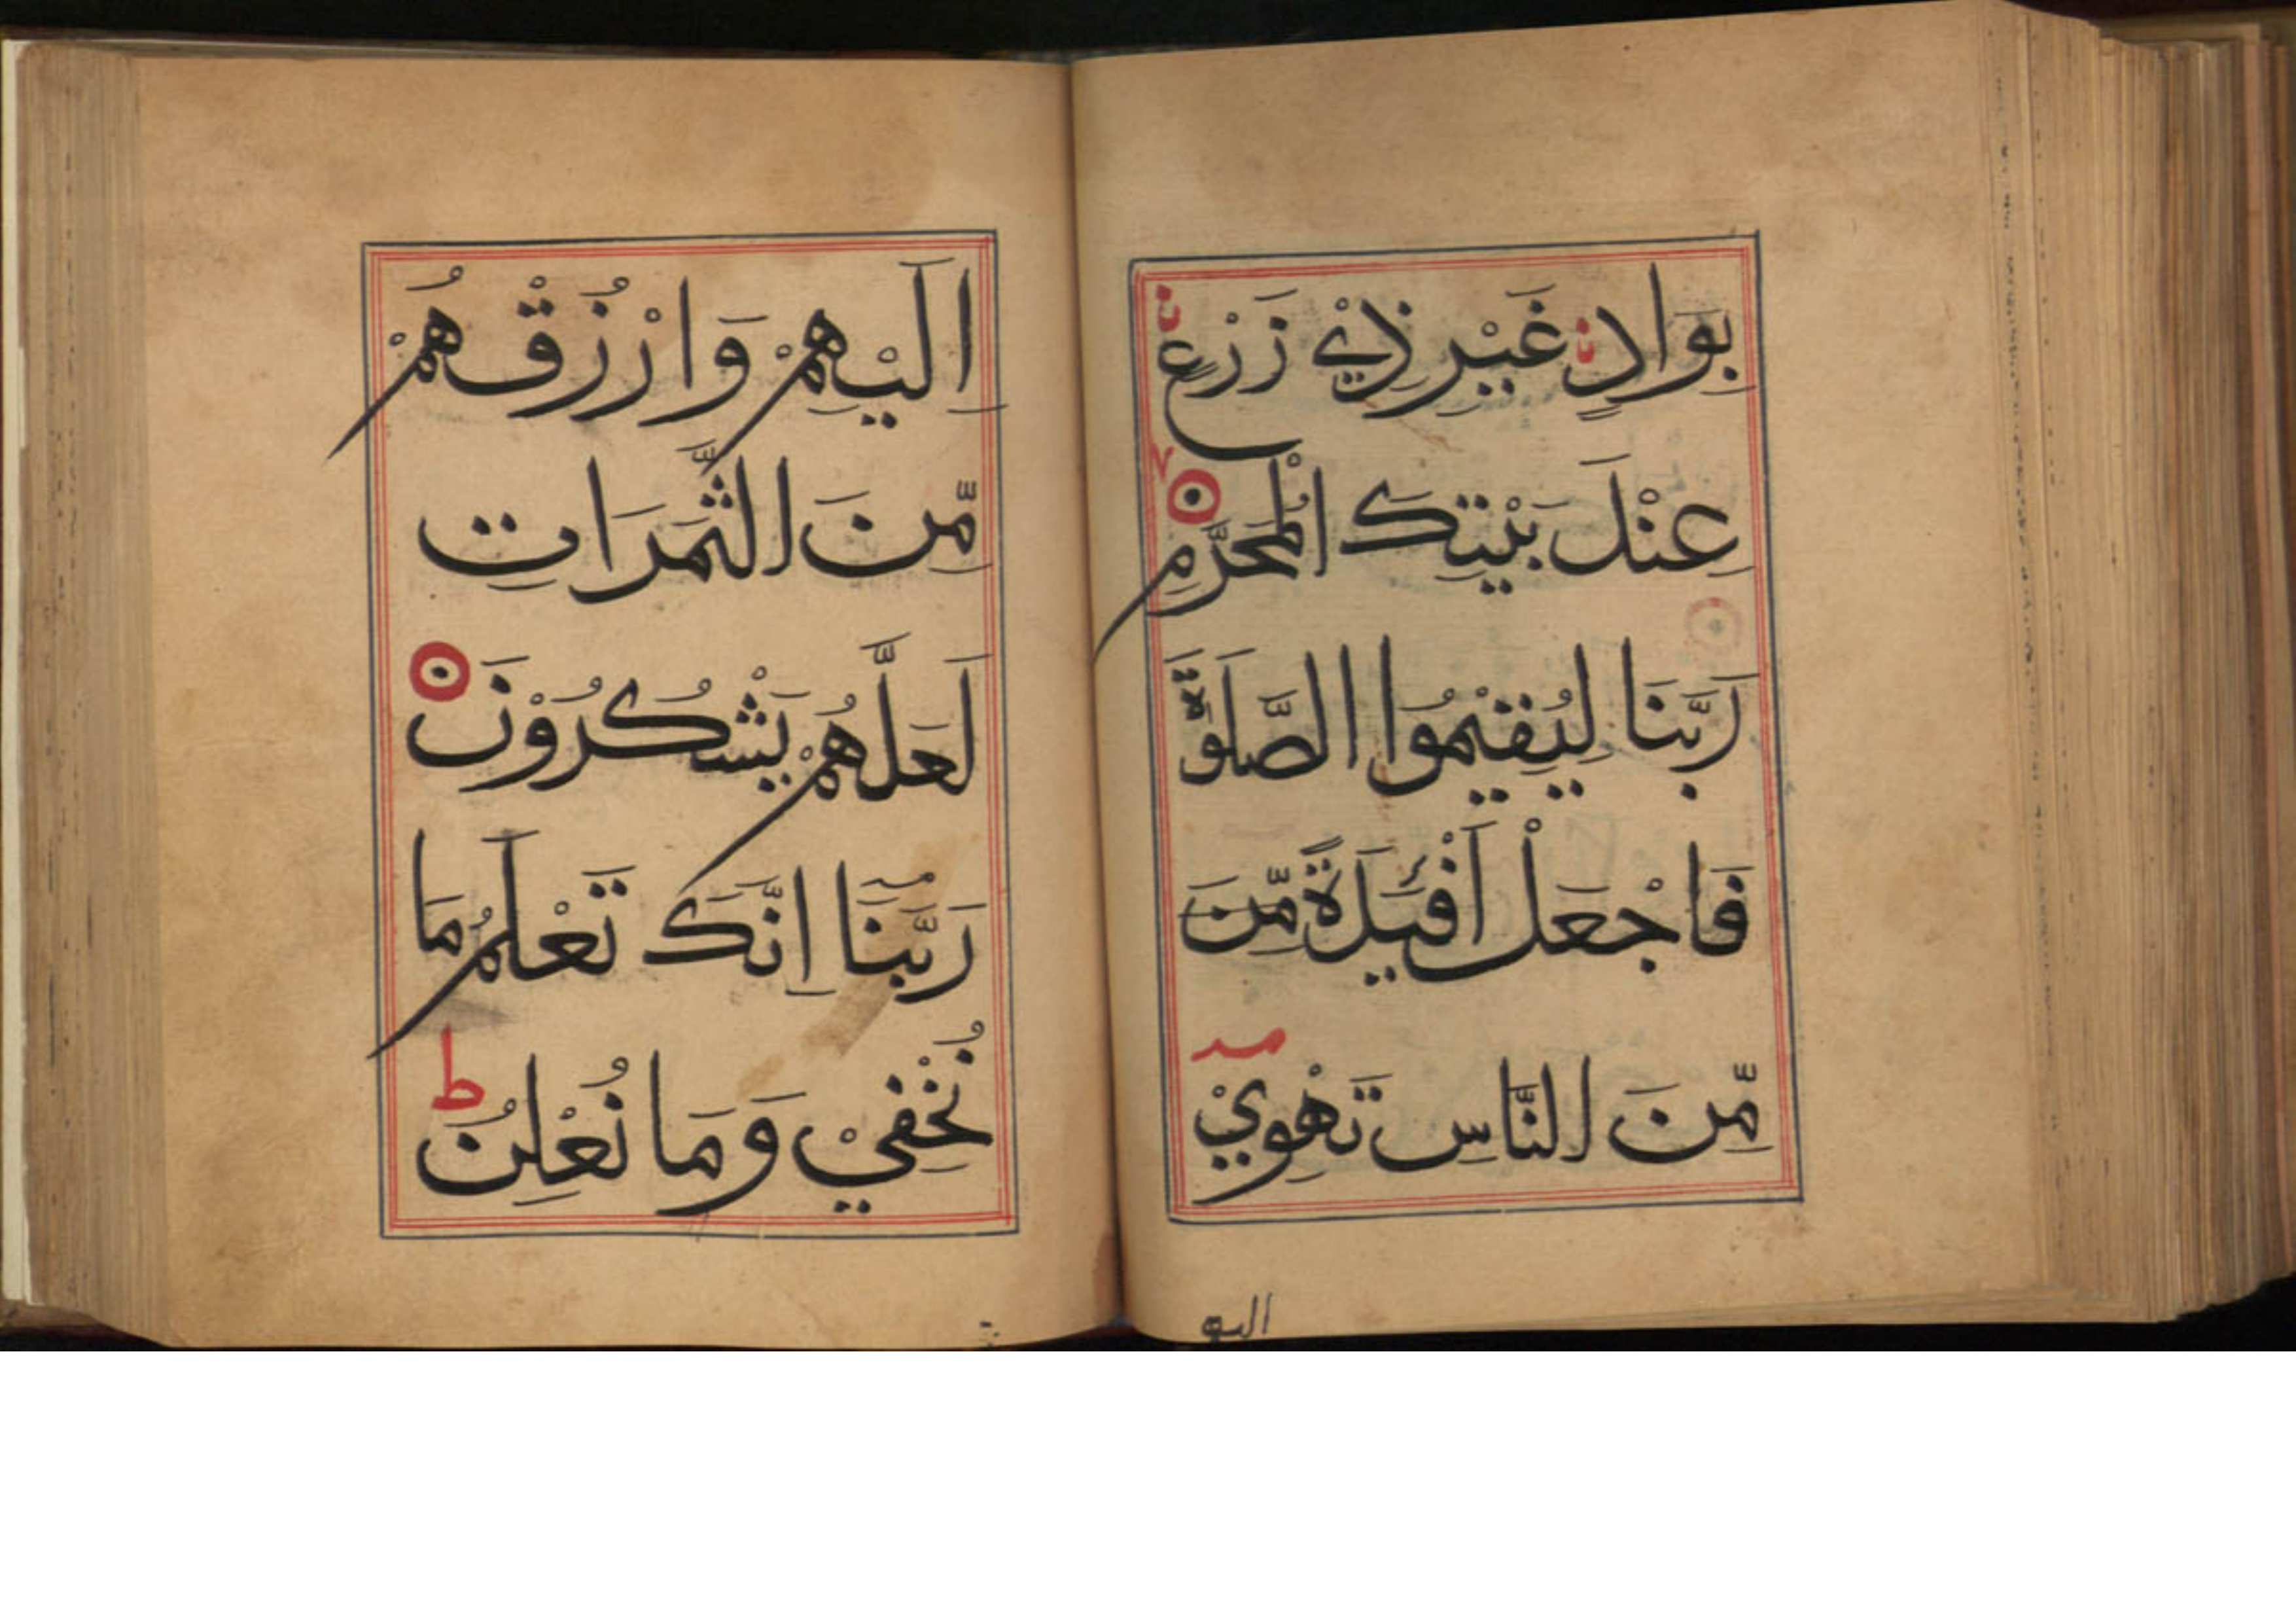 بِوَادٍ غَيْرِ ذِيْ زَرْعٍ
عِنْدَ بَيْتِكَ الْمُحَرَّمِ
رَبَّنَا لِيُقِيْمُوا الصَّلٰوةَ
فَاجْعَلْ اَفْئِدَةً مِّنَ
مِّنَ النَّاسِ تَهْوِيْ
الیه
اِلَيْهِمْ وَارْزُقْهُمْ
مِّنَ الثَّمَرَاتِ
لَعَلَّهُمْ يَشْكُرُوْنَ
رَبَّنَا اِنَّكَ تَعْلَمُ مَا
نُخْفِيْ وَمَا نُعْلِنُ ط